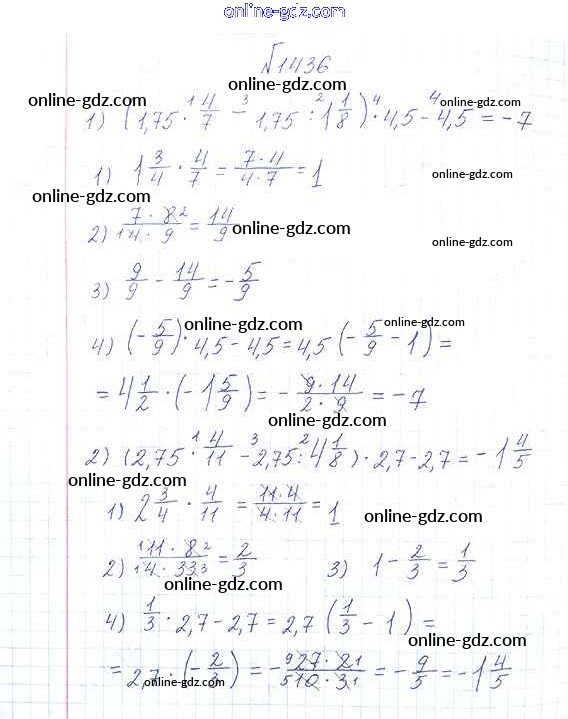 online-gdz.com
№1436
online-gdz.com online-gdz.com online-gdz.com
1) (1,75 · 4/7 − 1,75 : 1 1/8) · 4,5 − 4,5 = −7
1) 1 3/4 · 4/7 = 7·4/4·7 = 1 online-gdz.com
online-gdz.com
2) 7·8/4·9 = 14/9 online-gdz.com online-gdz.com
3) 9/9 − 14/9 = −5/9
online-gdz.com online-gdz.com
4) (−5/9) · 4,5 − 4,5 = 4,5 (−5/9 − 1) =
= 4 1/2 · (−1 5/9) = − 9·14/2·9 = −7
online-gdz.com
2) (2,75 · 4/11 − 2,75 : 4 1/8) · 2,7 − 2,7 = −1 4/5
online-gdz.com
1) 2 3/4 · 4/11 = 11·4/4·11 = 1 online-gdz.com
2) 11·8/4·33 = 2/3 3) 1 − 2/3 = 1/3
online-gdz.com
4) 1/3 · 2,7 − 2,7 = 2,7 (1/3 − 1) =
online-gdz.com
= 2,7 · (−2/3) = − 27·2/10·3 = −9/5 = −1 4/5
online-gdz.com online-gdz.com